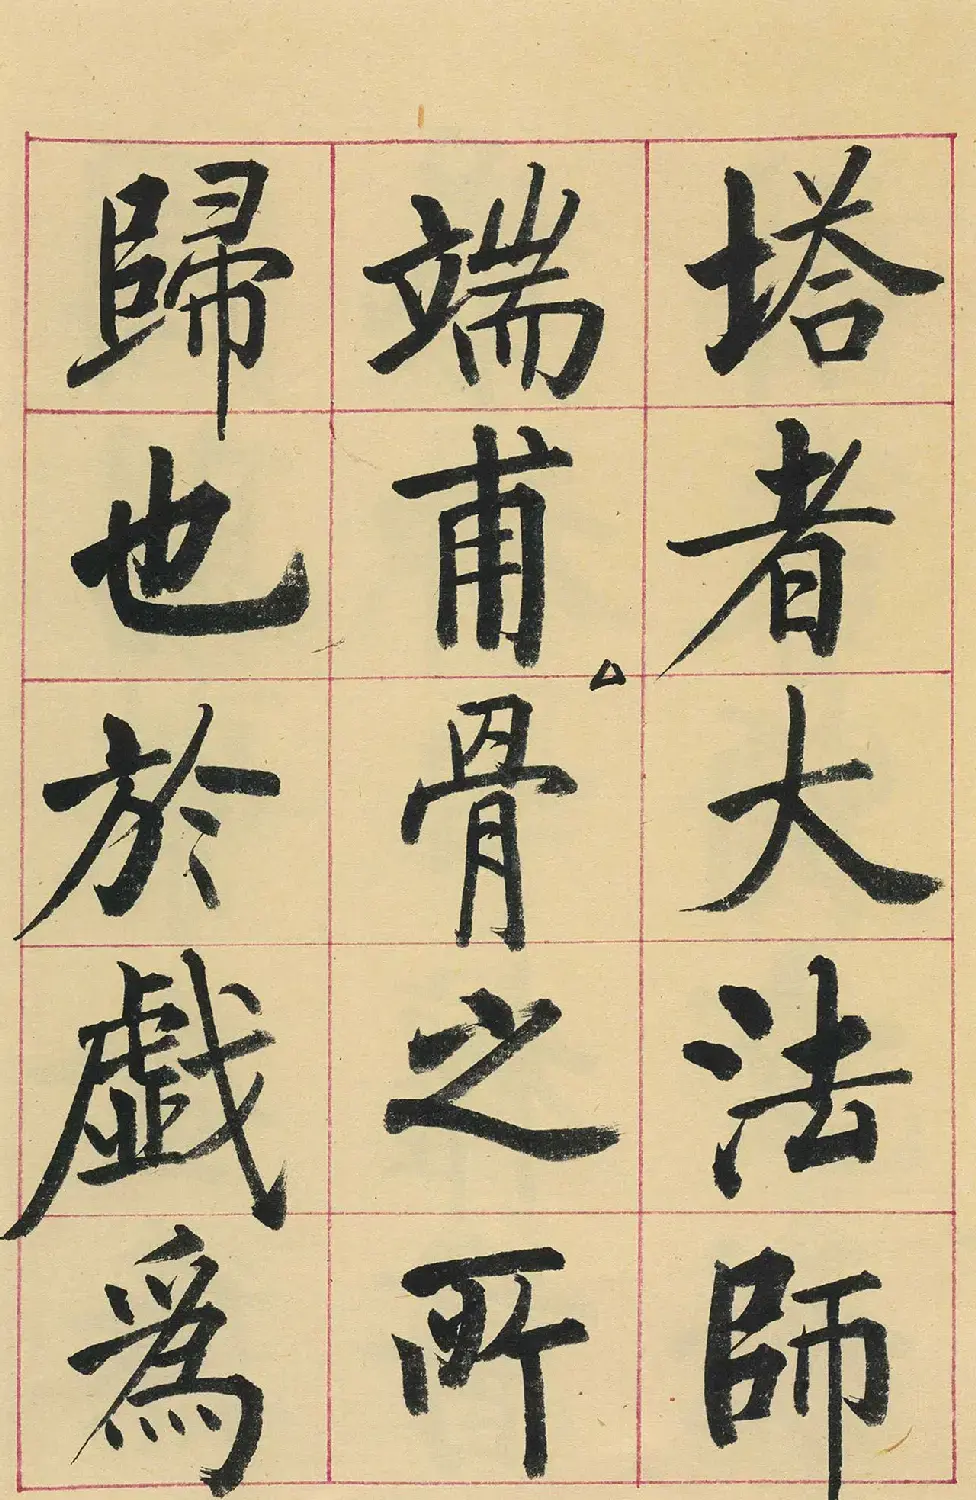 塔者大法師
端甫骨之所
歸也於戲為